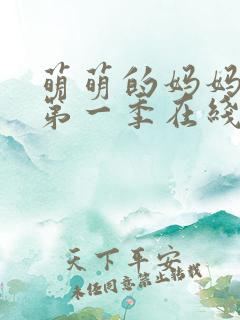 萌萌的妈妈
第一季在线
天下平安
未经同意禁止转载